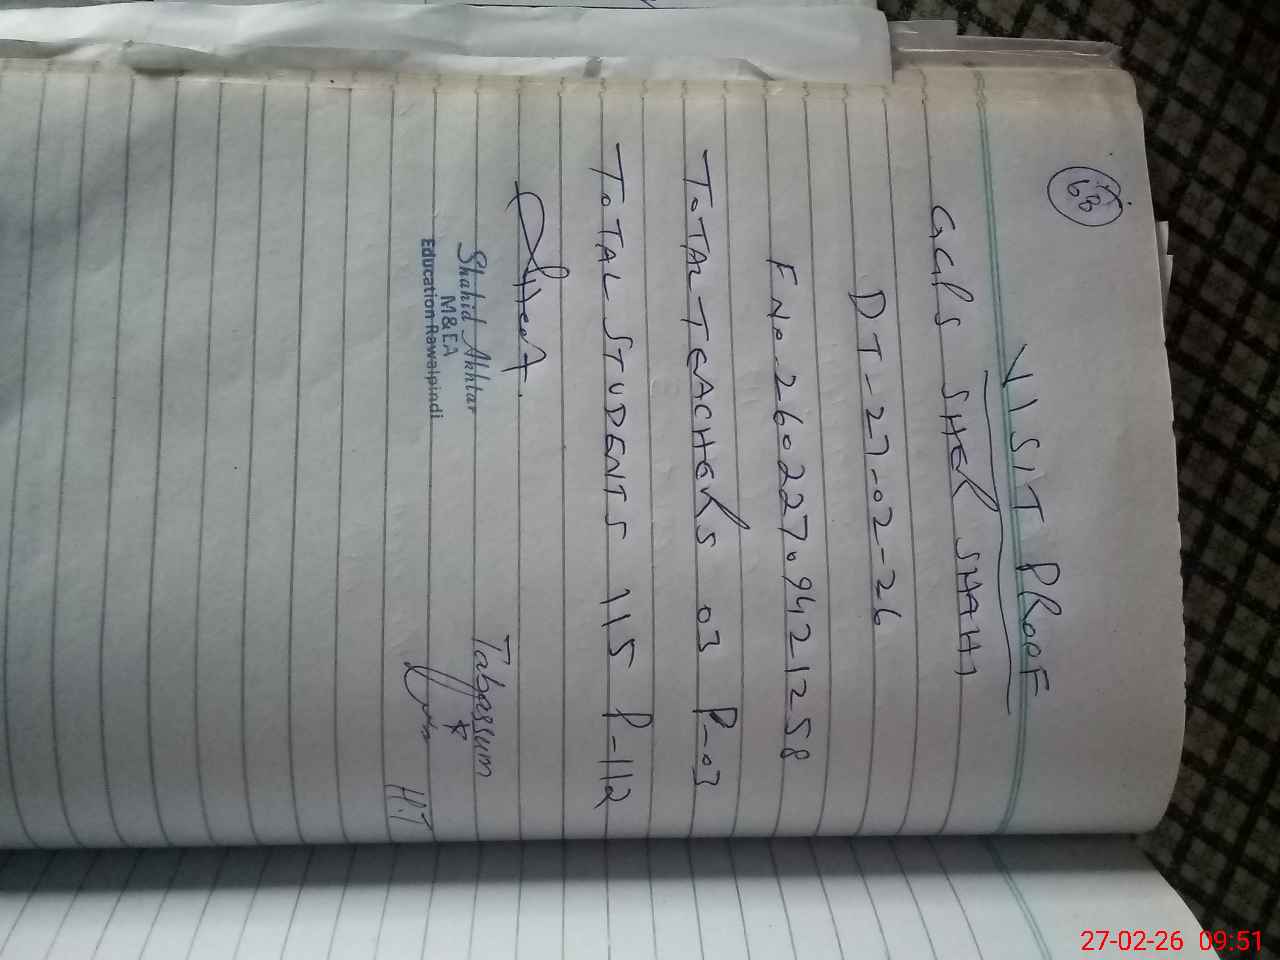 68
VISIT PROOF
GGPS SHER SHAHI
DT-27-02-26
F No. 26022709421258
TOTAL TEACHERS 03 P-03
TOTAL STUDENTS 115 P-112
Shahid Akhtar
M&EA
Education Rawalpindi
Tabassum
H.T
27-02-26 09:51